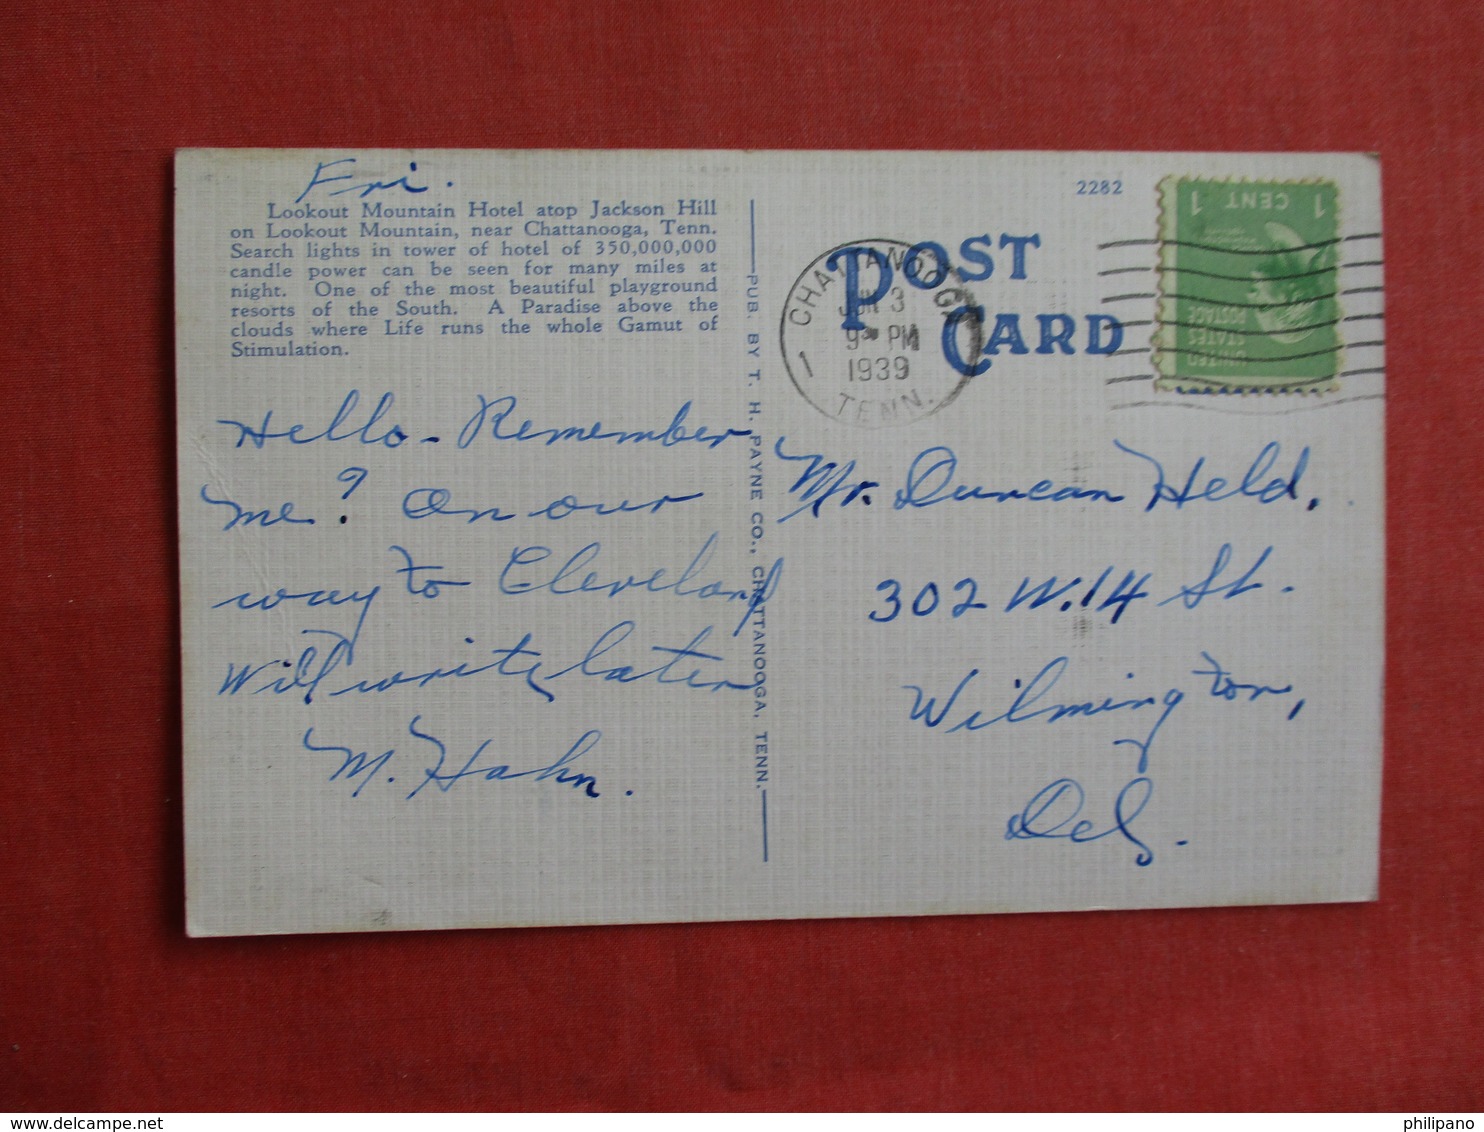 Fri.
Lookout Mountain Hotel atop Jackson Hill
on Lookout Mountain, near Chattanooga, Tenn.
Search lights in tower of hotel of 350,000,000
candle power can be seen for many miles at
night. One of the most beautiful playground
resorts of the South. A Paradise above the
clouds where Life runs the whole Gamut of
Stimulation.
Hello - Remember
me? On our
way to Cleveland
Will write later
M. Hahn.
PUB. BY T. H. PAYNE CO., CHATTANOOGA, TENN.
2282
POST
CARD
CHATTANOOGA
JUN 3
9 PM
1939
1
TENN.
1 CENT 1
UNITED
STATES
POSTAGE
Mr. Duncan Held.
302 W. 14 St.
Wilmington,
Del.
www.delcampe.net
philipano